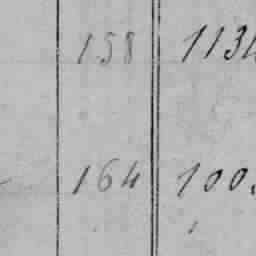 158 113
164 100